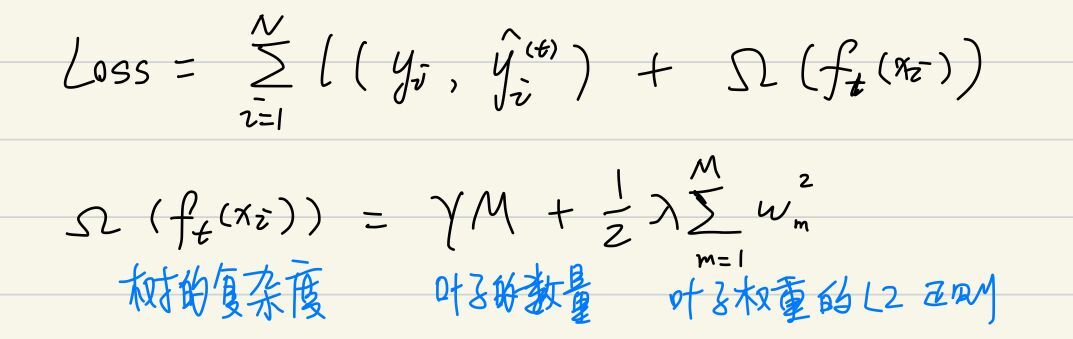 Loss = \sum_{i=1}^{N} l(y_i, \hat{y}_i^{(t)}) + Ω(f_t(x_i))
Ω(f_t(x_i)) = γM + \frac{1}{2} λ \sum_{m=1}^{M} w_m^2
树的复杂度 叶子的数量 叶子权重的L2正则